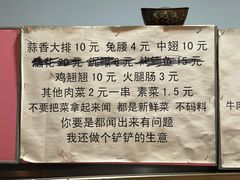 蒜香大排 10 元 兔腰 4 元 中翅 10 元
鸡翅翅 10 元 火腿肠 3 元
其他肉菜 2 元一串 素菜 1.5 元
不要把菜拿起来闻 都是新鲜菜 不码料
你要是都闻出来有问题
我还做个铲铲的生意
牛肉